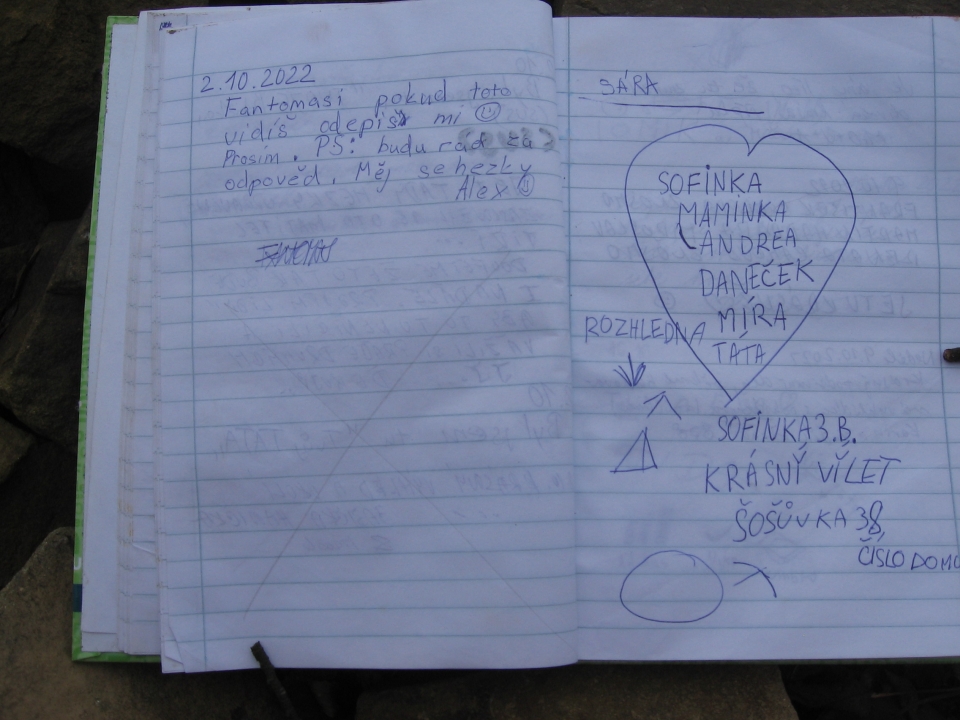 2.10.2022
Fantomasi pokud toto
vidíš odepiš mi
Prosím. PS: budu rád za
odpověd. Měj se hezky
Alex
SÁRA
SOFINKA
MAMINKA
ANDREA
DANEČEK
MÍRA
TÁTA
ROZHLEDNA
SOFINKA 3.B.
KRÁSNÝ VÍLET
ŠOŠŮVKA 38,
ČÍSLO DOMU